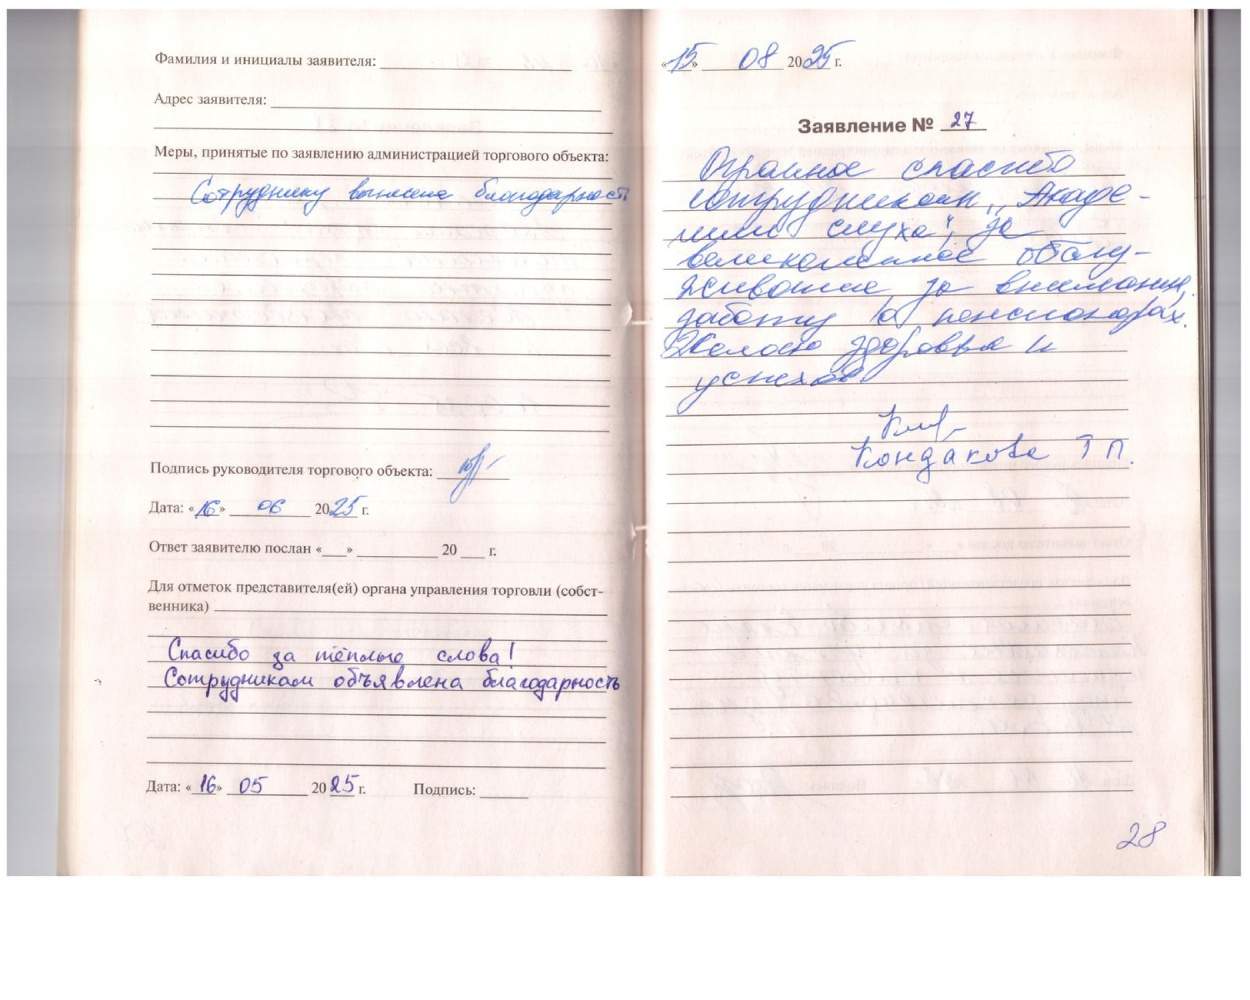 Фамилия и инициалы заявителя:
Адрес заявителя:
Меры, принятые по заявлению администрацией торгового объекта:
Сотруднику вынесена благодарность
Подпись руководителя торгового объекта:
Дата: «16» 06 2025 г.
Ответ заявителю послан «___» ___ 20 ___ г.
Для отметок представителя(ей) органа управления торговли (собст-
венника)
Спасибо за тёплые слова!
Сотрудникам объявлена благодарность
Дата: «16» 05 2025 г. Подпись:
«15» 08 2025 г.
Заявление № 27
Огромное спасибо
сотрудникам „Акаде-
мии слуха", за
великолепное обслу-
живание за внимание,
заботу о пенсионерах.
Желаю здоровья и
успехов
Кондакова Т П.
28